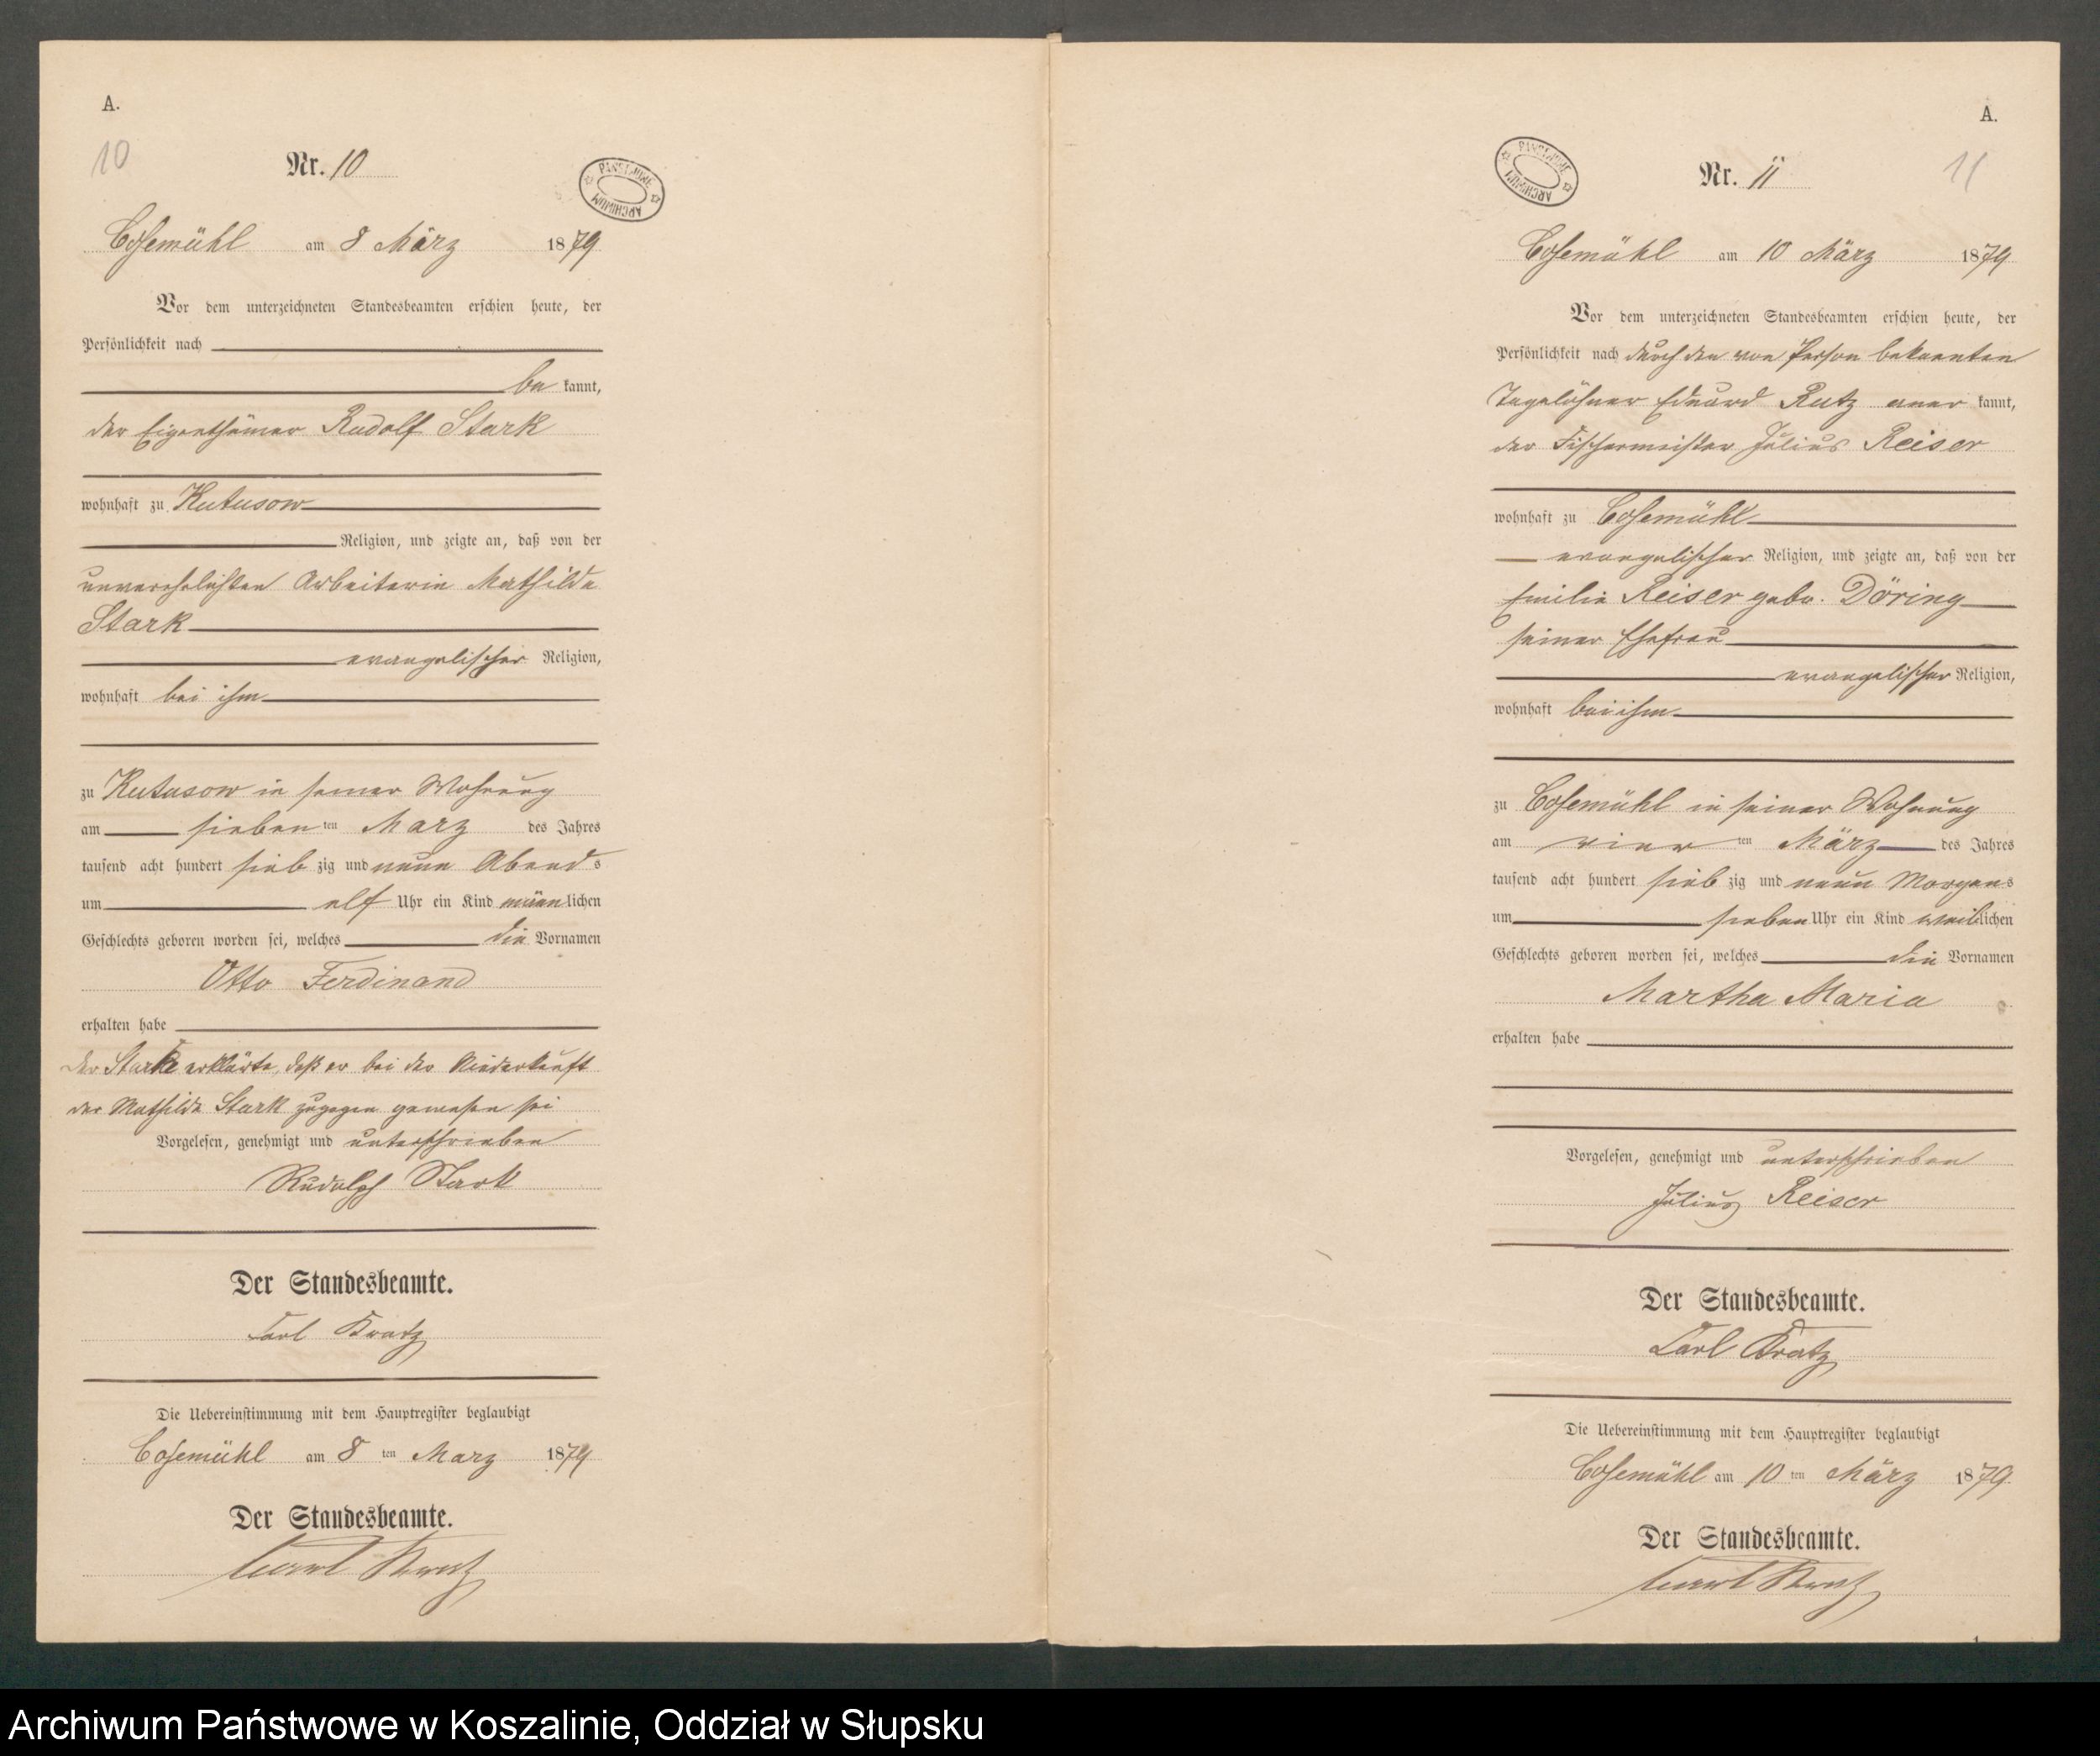 A.
10
Nr. 10
PAŃSTWOWE
ARCHIWUM
Cosemühl am 8 März 1879
Vor dem unterzeichneten Standesbeamten erschien heute, der
Persönlichkeit nach
be kannt,
der Eigenthümer Rudolf Stark
wohnhaft zu Kutusow
Religion, und zeigte an, daß von der
unverehelichten Arbeiterin Mathilde
Stark
evangelischer Religion,
wohnhaft bei ihm
zu Kutusow in seiner Wohnung
am sieben ten März des Jahres
tausend acht hundert sieb zig und neun Abends
um elf Uhr ein Kind männlichen
Geschlechts geboren worden sei, welches die Vornamen
Otto Ferdinand
erhalten habe
der Stark erklärte, daß er bei der Niederkunft
der Mathilde Stark zugegen gewesen sei
Vorgelesen, genehmigt und unterschrieben
Rudolph Stark
Der Standesbeamte.
Carl Kratz
Die Uebereinstimmung mit dem Hauptregister beglaubigt
Cosemühl am 8 ten März 1879
Der Standesbeamte.
Carl Kratz
A.
11
Nr. 11
PAŃSTWOWE
ARCHIWUM
Cosemühl am 10 März 1879
Vor dem unterzeichneten Standesbeamten erschien heute, der
Persönlichkeit nach durch den von Person bekannten
Tagelöhner Eduard Rutz aner kannt,
der Fischermeister Julius Reiser
wohnhaft zu Cosemühl
evangelischer Religion, und zeigte an, daß von der
Emilie Reiser gebo. Döring
seiner Ehefrau
evangelischer Religion,
wohnhaft bei ihm
zu Cosemühl in seiner Wohnung
am vier ten März des Jahres
tausend acht hundert sieb zig und neun Morgens
um sieben Uhr ein Kind weiblichen
Geschlechts geboren worden sei, welches die Vornamen
Martha Maria
erhalten habe
Vorgelesen, genehmigt und unterschrieben
Julius Reiser
Der Standesbeamte.
Carl Kratz
Die Uebereinstimmung mit dem Hauptregister beglaubigt
Cosemühl am 10 ten März 1879
Der Standesbeamte.
Carl Kratz
Archiwum Państwowe w Koszalinie, Oddział w Słupsku